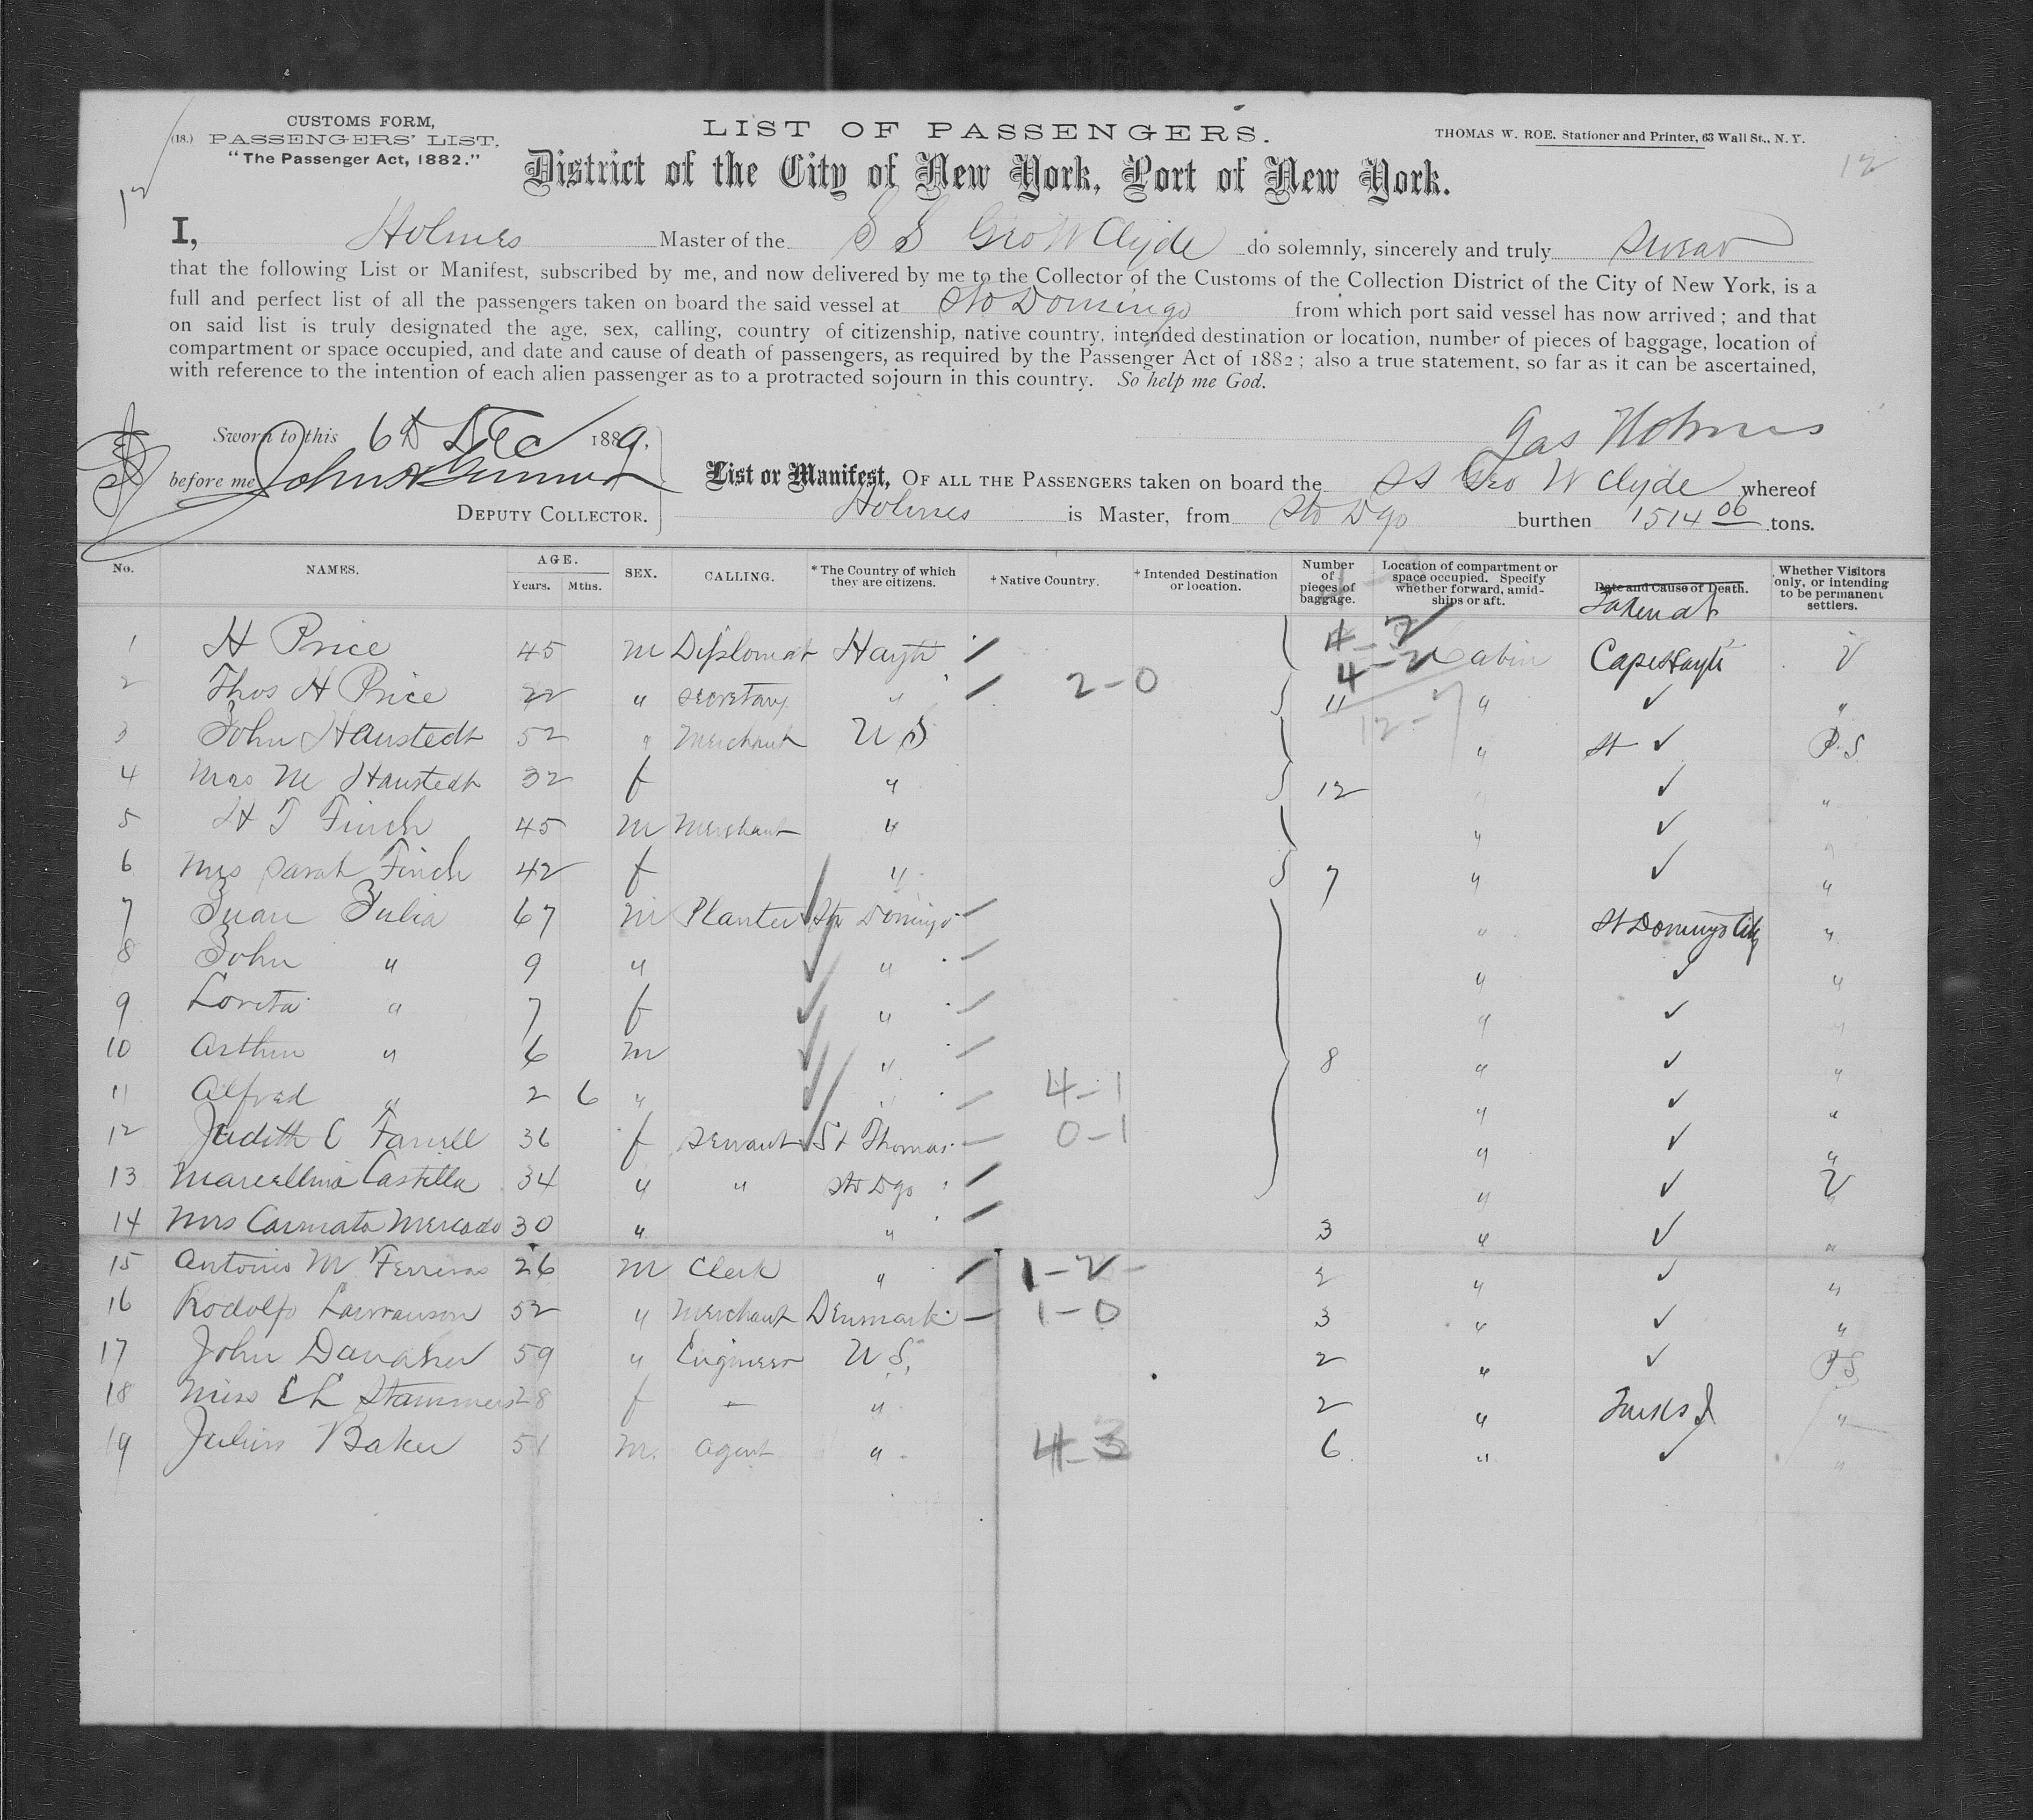 CUSTOMS FORM,
(18.) PASSENGERS' LIST.
"The Passenger Act, 1882."
LIST OF PASSENGERS.
THOMAS W. ROE. Stationer and Printer, 63 Wall St., N. Y.
12
12
District of the City of New York, Port of New York.
I, Holmes Master of the S S Geo W Clyde do solemnly, sincerely and truly swear
that the following List or Manifest, subscribed by me, and now delivered by me to the Collector of the Customs of the Collection District of the City of New York, is a
full and perfect list of all the passengers taken on board the said vessel at Sto Domingo from which port said vessel has now arrived; and that
on said list is truly designated the age, sex, calling, country of citizenship, native country, intended destination or location, number of pieces of baggage, location of
compartment or space occupied, and date and cause of death of passengers, as required by the Passenger Act of 1882; also a true statement, so far as it can be ascertained,
with reference to the intention of each alien passenger as to a protracted sojourn in this country. So help me God.
Sworn to this 6th Dec 1889,
Jas Holmes
before me John
DEPUTY COLLECTOR.
List or Manifest, OF ALL THE PASSENGERS taken on board the SS Geo W Clyde whereof
Holmes is Master, from Sto Dgo burthen 1514 06 tons.
No. NAMES. AGE. Years. Mths. SEX. CALLING. *The Country of which they are citizens. † Native Country. † Intended Destination or location. Number of pieces of baggage. Location of compartment or space occupied. Specify whether forward, amidships or aft. Date and Cause of Death. Taken at Whether Visitors only, or intending to be permanent settlers.
1 H Price 45 m Diplomat Hayti 4-2 4-2 Cabin Cape Hayti V
2 Thos H Price 22 " secretary " 2-0 11 " ✓ "
3 John Haustedt 52 " Merchant U S 12-7 " St ✓ P.S.
4 Mrs M Haustedt 32 f " 12 ✓ "
5 H T Finch 45 m Merchant " " ✓ "
6 Mrs Sarah Finch 42 f " 7 " ✓ "
7 Juan Julia 67 m Planter Sto Domingo " St Domingo City "
8 John " 9 " " " ✓ "
9 Loreta " 7 f " " ✓ "
10 Arthur " 6 m " 8 " ✓ "
11 Alfred " 2 6 " " 4-1 " ✓ "
12 Judith C Farrell 36 f Servant St Thomas 0-1 " ✓ "
13 Marcellina Castilla 34 " " Sto Dgo " ✓ V
14 Mrs Carmata Mercado 30 " " 3 " ✓ "
15 Antonio M Ferreras 26 m Clerk " 1-2- 2 " ✓ "
16 Rodolfo Lawranson 52 " Merchant Denmark 1-0 3 " ✓ "
17 John Danaher 59 " Engineer U S. 2 " ✓ P S
18 Miss E L Stammers 28 f - " 2 " Turks I "
19 Julius Baker 51 m. agent " 4-3 6 " ✓ "